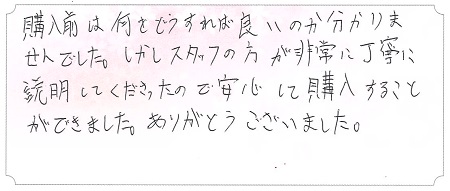 購入前は何をどうすれば良いのか分かりま
せんでした。しかしスタッフの方が非常に丁寧に
説明してくださったので安心して購入すること
ができました。ありがとうございました。